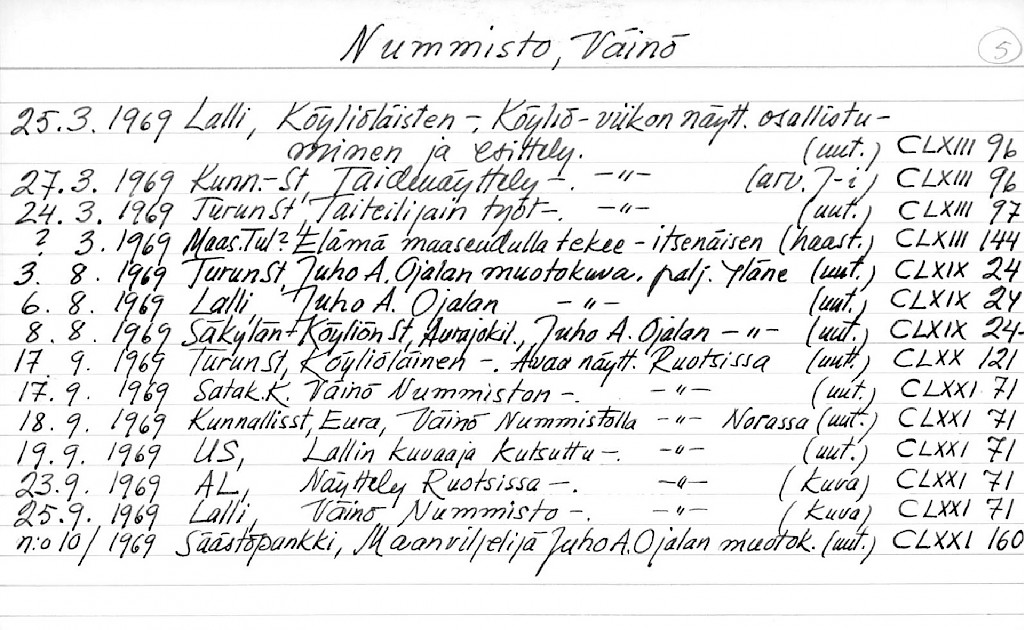 Nummisto, Väinö 5
25.3.1969 Lalli, Köyliöläisten -. Köyliö-viikon näytt. osallistu-
minen ja esittely. (uut.) CLXIII 96
27.3.1969 Kunn.-St, Taidenäyttely -. -"- (arv. J-i) CLXIII 96
24.3.1969 TurunSt, Taiteilijain työt -. -"- (uut.) CLXIII 97
? 3.1969 Maas.Tul? Elämä maaseudulla tekee - itsenäisen (haast.) CLXIII 144
3. 8. 1969 TurunSt, Juho A. Ojalan muotokuva. palj. Yläne (uut.) CLXIX 24
6. 8. 1969 Lalli, Juho A. Ojalan -"- (uut.) CLXIX 24
8. 8. 1969 Säkylän+Köyliön St, Aurajokil., Juho A. Ojalan -"- (uut.) CLXIX 24-
17. 9. 1969 TurunSt, Köyliöläinen -. Avaa näytt. Ruotsissa (uut.) CLXX 121
17. 9. 1969 Satak.K. Väinö Nummiston -. -"- (uut.) CLXXI 71
18. 9. 1969 Kunnallisst, Eura, Väinö Nummistolla -"- Norassa (uut.) CLXXI 71
19. 9. 1969 US, Lallin kuvaaja kutsuttu -. -"- (uut.) CLXXI 71
23.9. 1969 AL, Näyttely Ruotsissa -. -"- (kuva) CLXXI 71
25.9. 1969 Lalli, Väinö Nummisto -. -"- (kuva) CLXXI 71
n:o 10/1969 Säästöpankki, Maanviljelijä Juho A. Ojalan muotok. (uut.) CLXXI 160